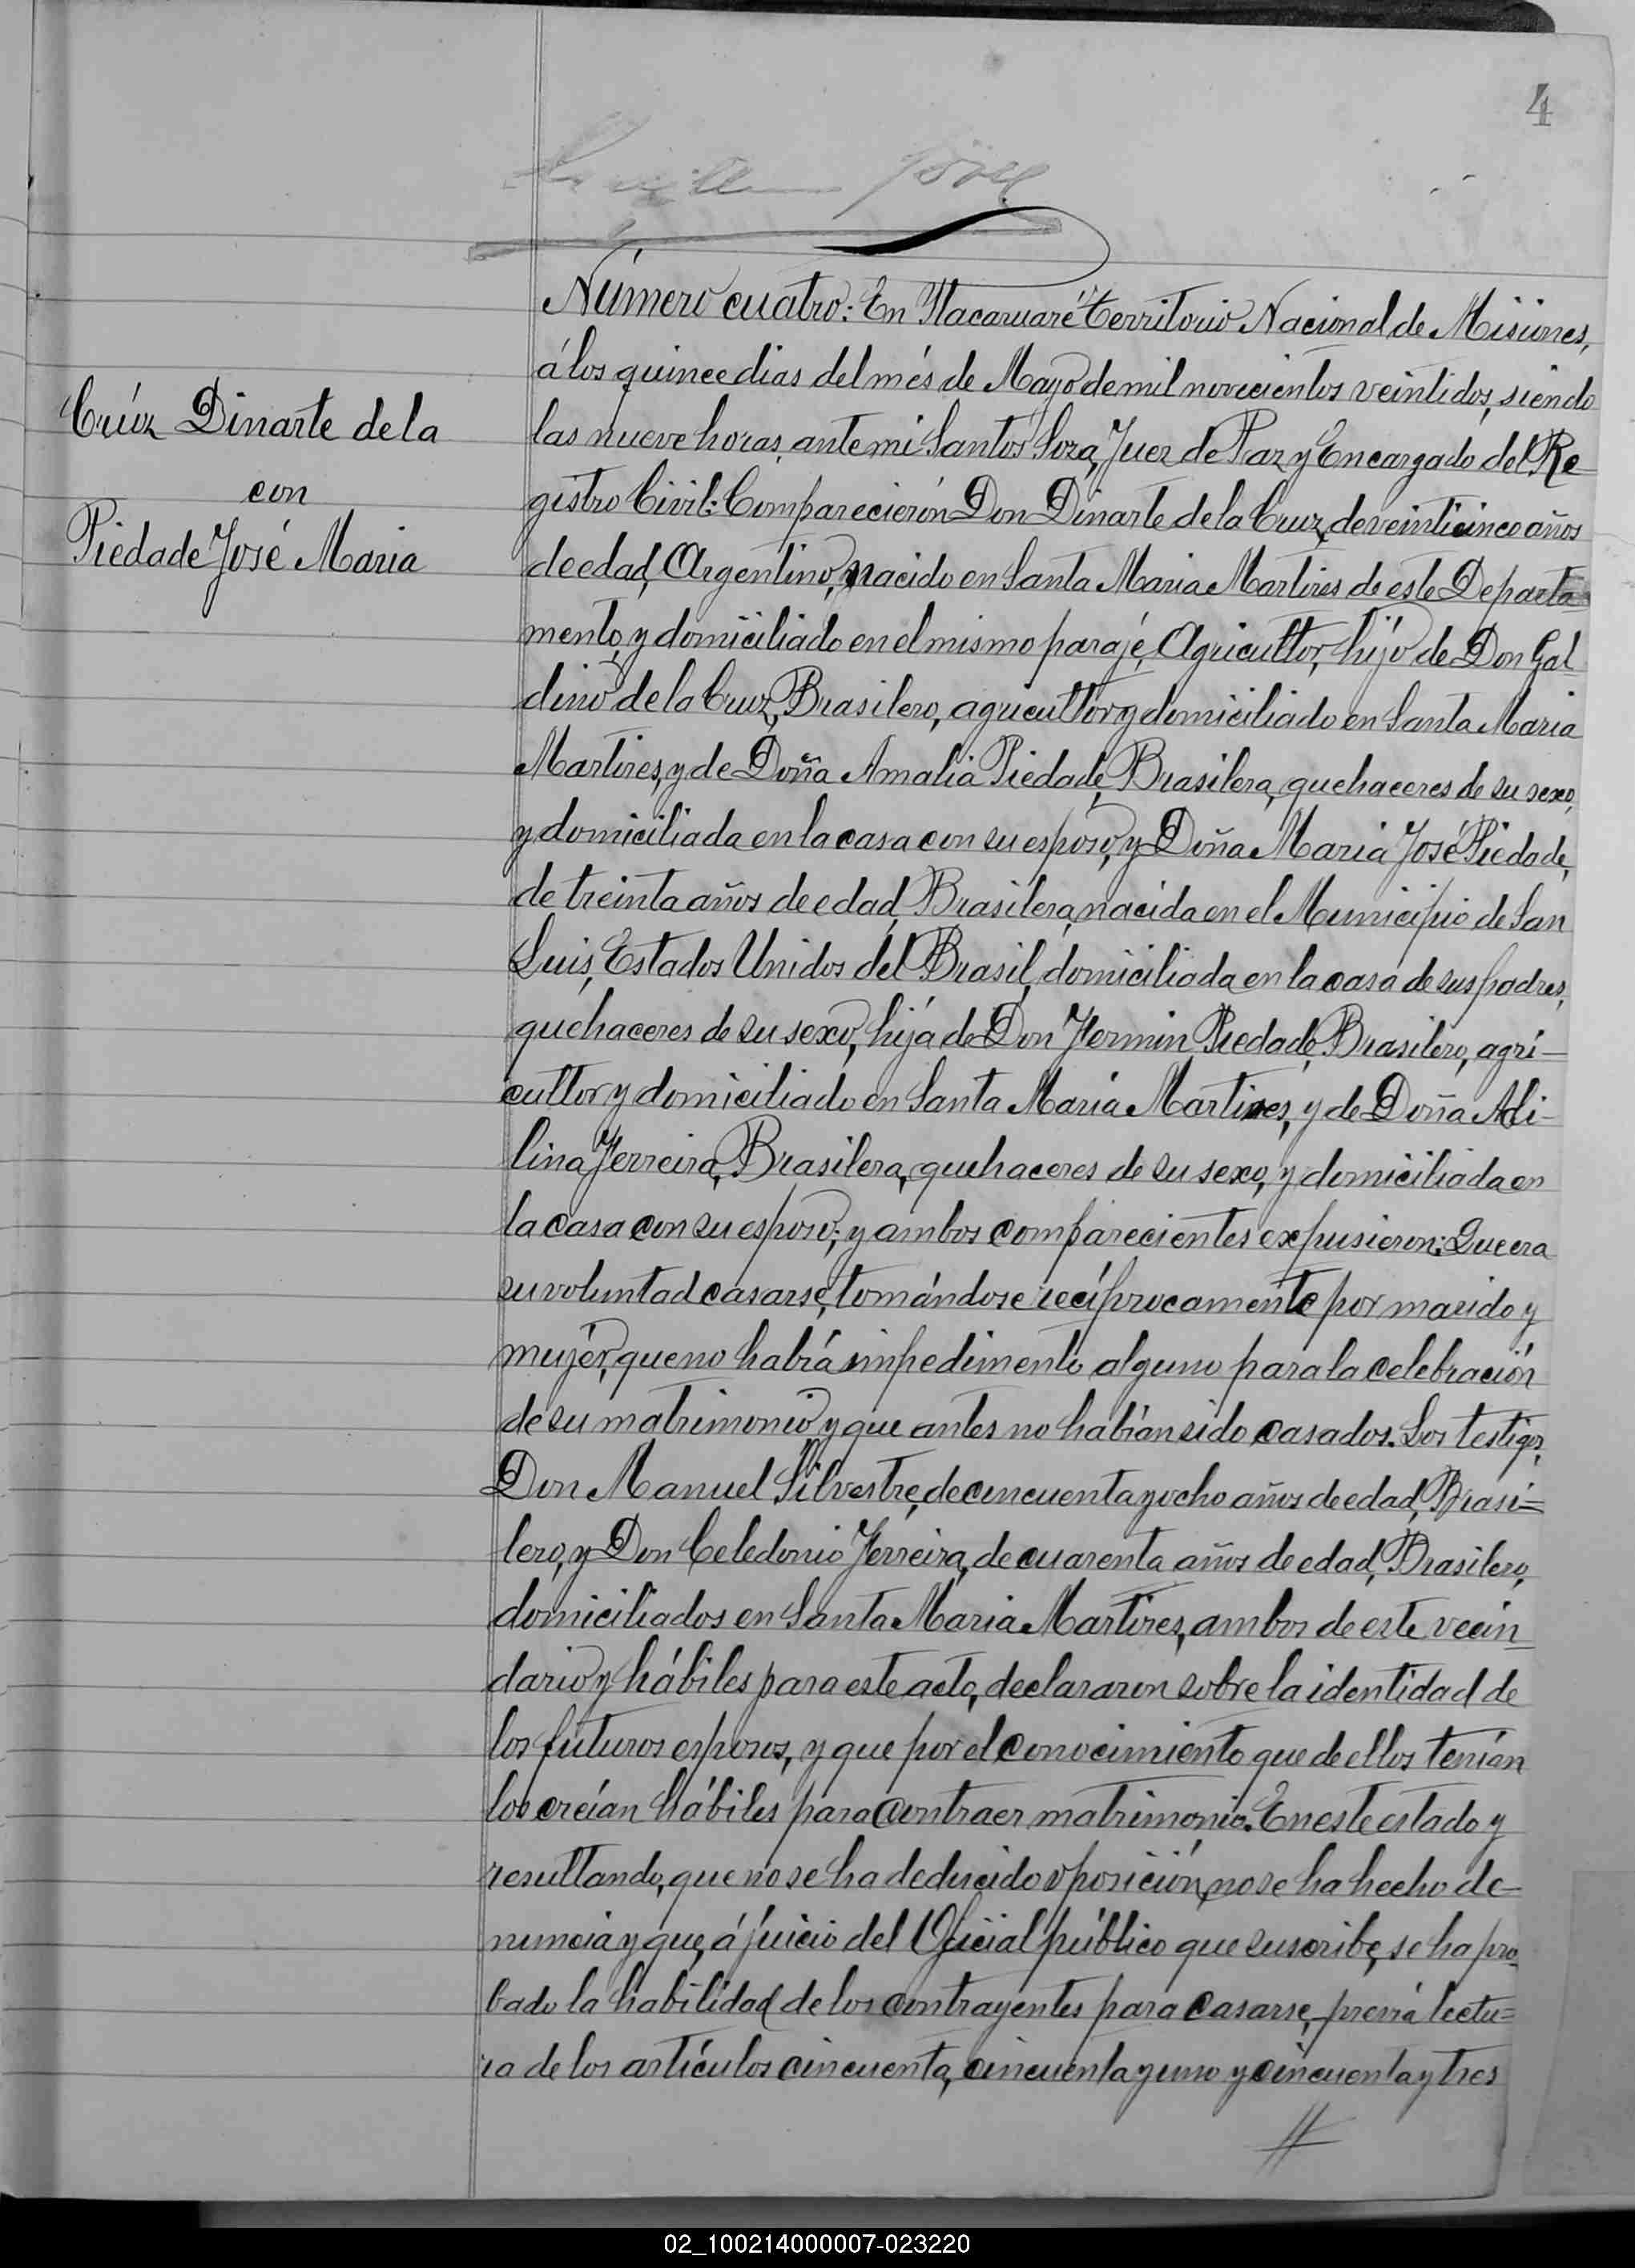 4
Número cuatro: En Itacaruaré Territorio Nacional de Misiones,
á los quince dias del més de Mayo de mil novecientos veintidos, siendo
las nueve horas, ante mi Santos Soza, Juez de Paz y Encargado del Re
gistro Civil: Comparecierón Don Dinarte de la Cruz, de veinticinco años
de edad, Argentino, nacido en Santa Maria Martires de este Departa
mento, y domiciliado en el mismo parajé, Agricultor, hijo de Don Gal
dino de la Cruz, Brasilero, agricultor y domiciliado en Santa Maria
Martires, y de Doña Amalia Piedade, Brasilera, quehaceres de su sexo,
y domiciliada en la casa con su esposo, y Doña Maria José Piedade,
de treinta años de edad, Brasilera, nacida en el Municipio de San
Luis, Estados Unidos del Brasil, domiciliada en la casa de sus padres,
quehaceres de su sexo, hija de Don Fermin Piedade, Brasilero, agri-
cultor y domiciliado en Santa Maria Martires, y de Doña Adi-
lina Ferreira, Brasilera, quehaceres de su sexo, y domiciliada en
la casa con su esposo; y ambos comparecientes expusieron: Que era
su voluntad casarse, tomándose recíprocamente por marido y
mujér, que no habiá impedimento alguno para la celebración
de su matrimonio y que antes no habían sido casados. Los testigos,
Don Manuel Silvestre, de cincuenta y ocho años de edad, Brasi=
lero, y Don Celedonio Ferreira, de cuarenta años de edad, Brasilero,
domiciliados en Santa Maria Martires, ambos de este vecin
dario y hábiles para este acto, declararon sobre la identidad de
los futuros esposos, y que por el conocimiento que de ellos tenían
los creían hábiles para contraer matrimonio. En este estado y
resultando, que no se ha deducido oposición, no se ha hecho de-
nuncia y que, á júicio del Oficial público que suscribe, se ha pro
bado la habilidad de los contrayentes para casarse, previá lectu=
ra de los artículos cincuenta, cincuenta y uno y cincuenta y tres
//
Crúz Dinarte de la
con
Piedade José Maria
02_100214000007-023220